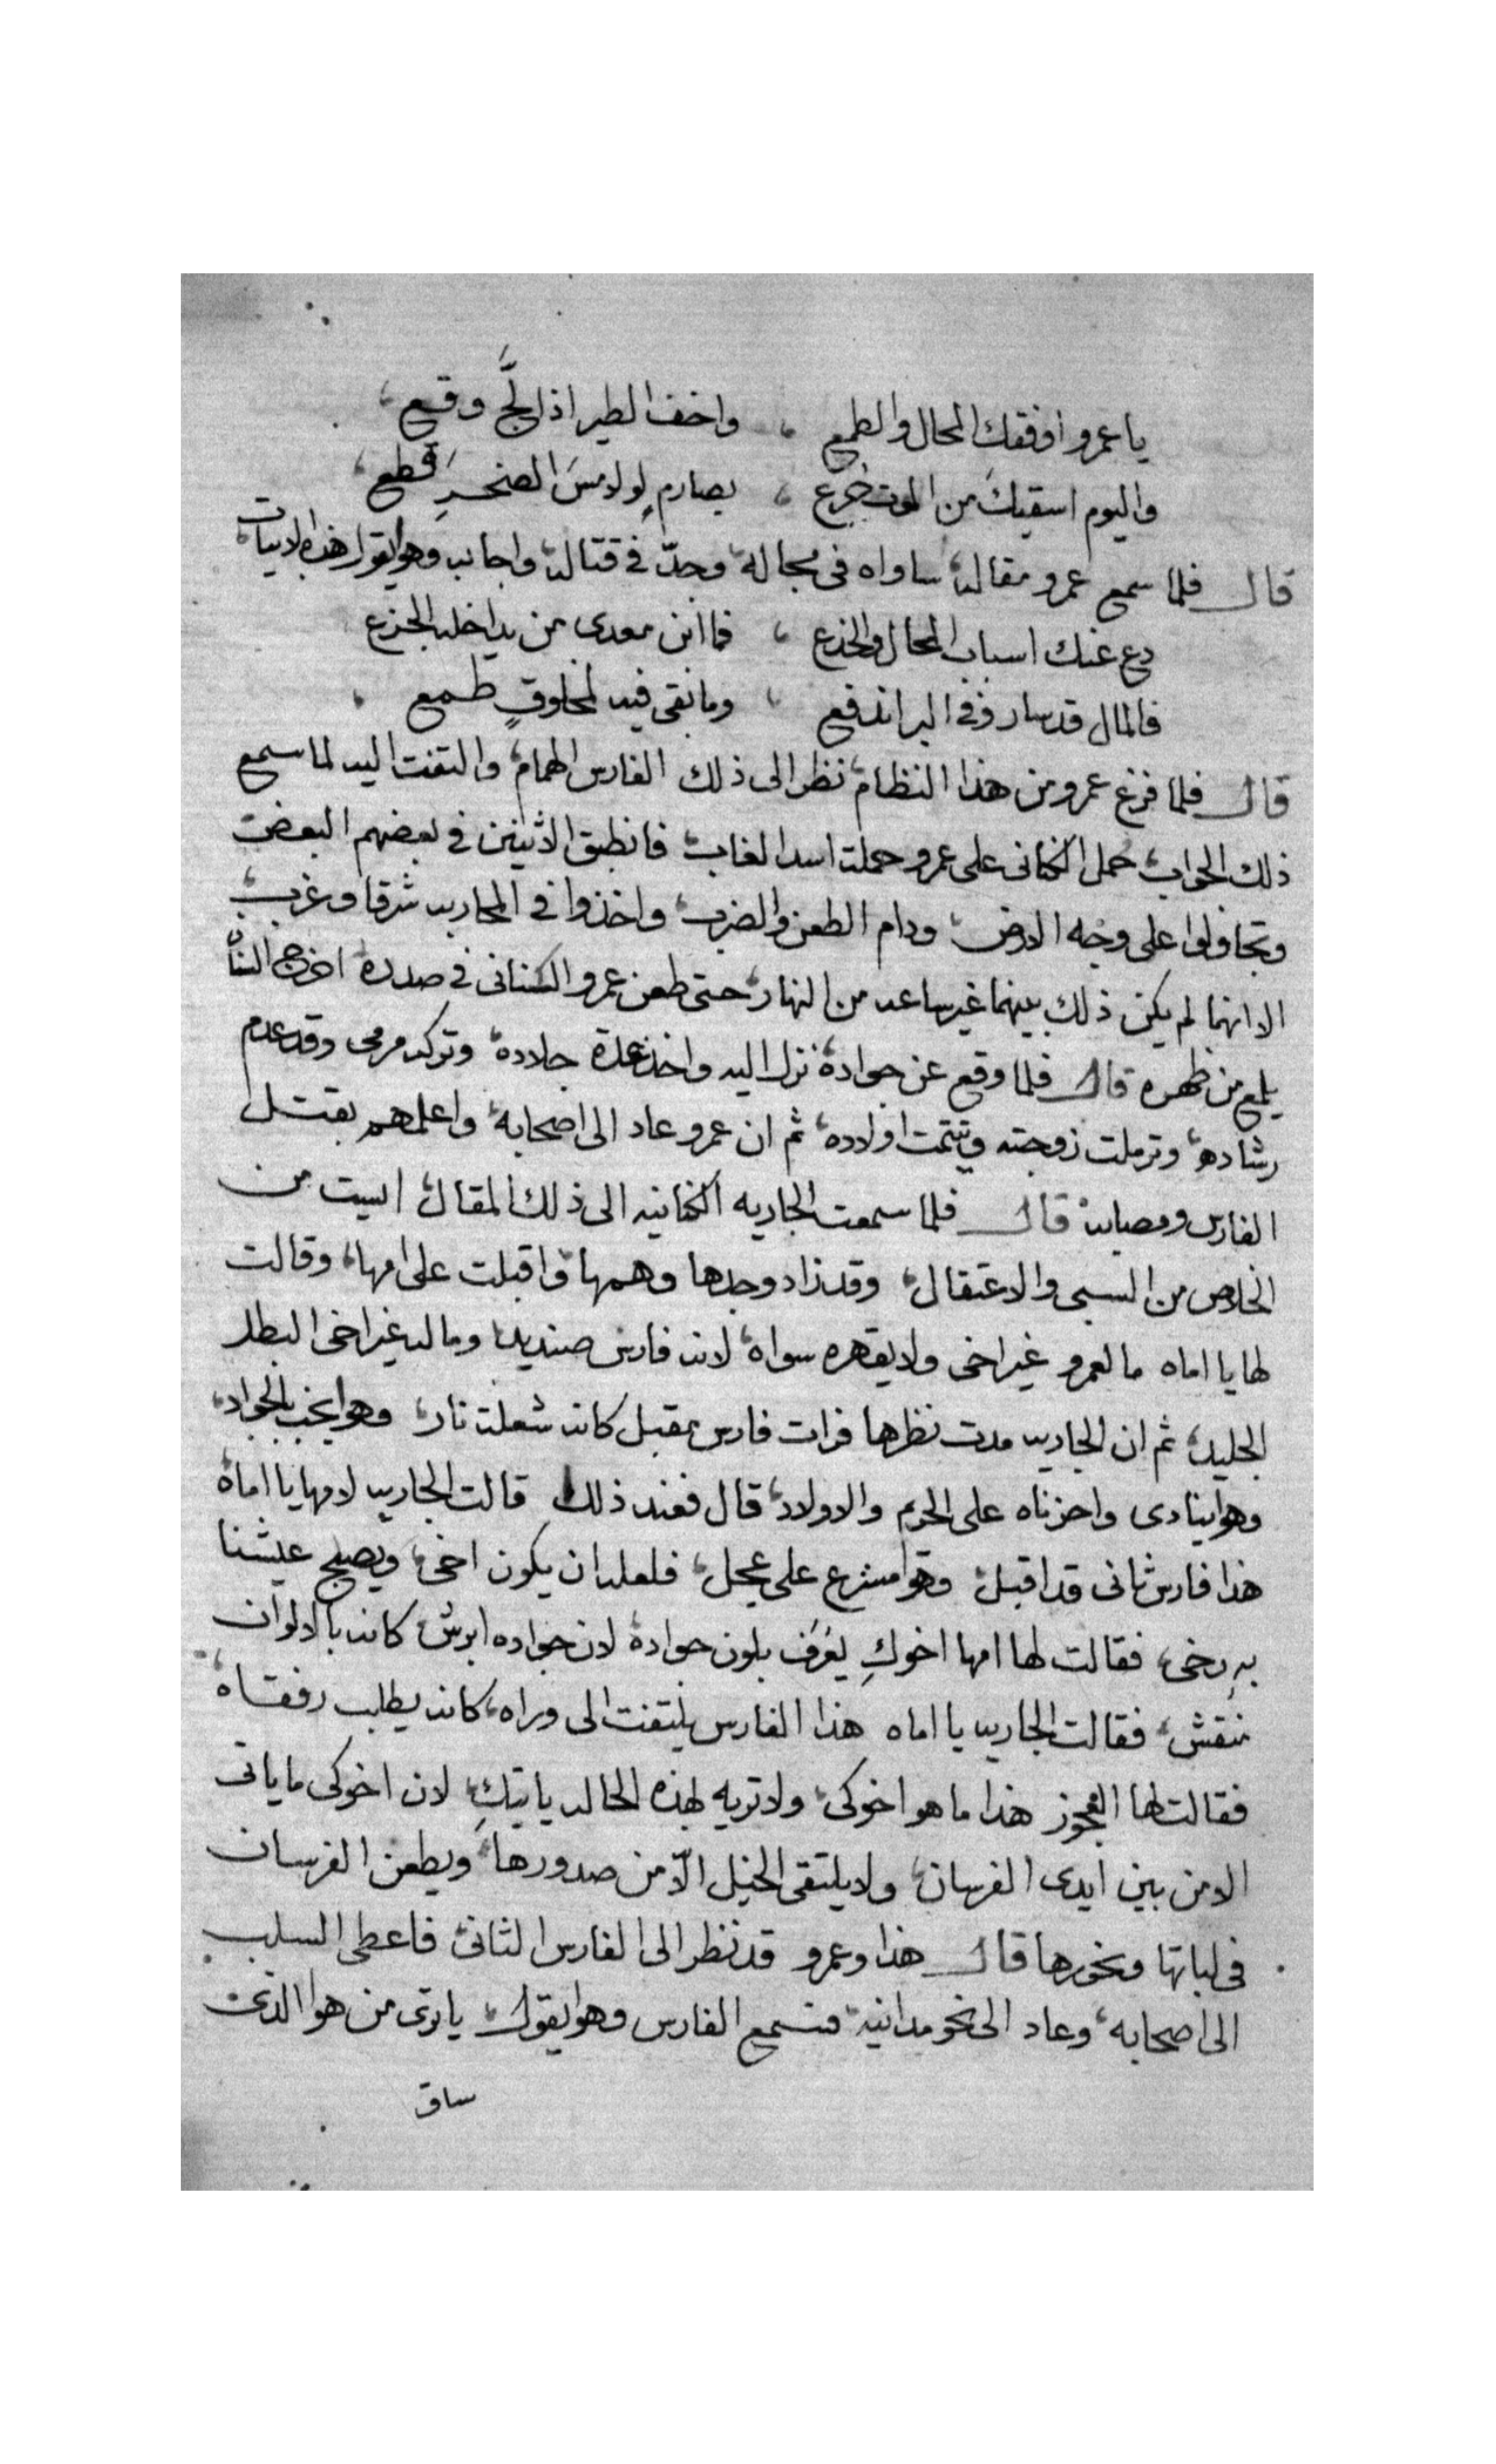 يا عمرو اوفقك المحال والطمع ، واخف الطير اذا لجَّ وقع ،
واليوم اسقيكَ من الموت جُرع ، بصارمٍ لو لامسَ الصخرِ قطع ،
قال فلما سمع عمرو مقاله، ساواه فى مجاله، وجدّ فى قتاله، واجابه وهوا يقول هذه الابيات،
دع عنك اسباب المحال والخدع ، فما ابن معدى من يداخله الجزع
فالمال قد سار وفى البر اندفع ، وما بقى فيه لمخلوقٍ طمع ،
قال فلما فرغ عمرو من هذا النظام، نظر الى ذلك الفارس الهمام، والتفت اليه لما سمع
ذلك الجواب، حمل الكنانى على عمرو حملت اسد الغاب، فانطبق الاثنين فى بعضهم البعض
وتجاولوا على وجه الارض، ودام الطعن والضرب، واخذوا فى المحاربه شرقا وغرب،
الا انهما لم يكن ذلك بينهما غير ساعه من النهار، حتى طعن عمرو الكنانى فى صدره اخرج السنان
يلمع من ظهره قال فلما وقع عن جواده، نزل اليه واخذ عدة جلاده، وتركه مرمى وقد عدم
رشاده، وترملت زوجته وتيتمت اولاده، ثم ان عمرو عاد الى اصحابه، واعلمهم بقتل
الفارس ومصابه، قال فلما سمعت الجاريه الكنانيه الى ذلك المقال، ايست من
الخلاص من السبى والاعتقال، وقد زاد وجدها وهمها، واقبلت على امها، وقالت
لها يا اماه ما لعمرو غير اخى ولا يقهره سواه، لانه فارس صنديد، وماله غير اخى البطل
الجليد، ثم ان الجاريه مدت نظرها فرات فارس مقبل كانه شعلة نار، وهوا يخب بالجواد،
وهوا ينادى واحزناه على الحريم والاولاد، قال فعند ذلك قالت الجاريه لامها يا اماه
هذا فارس ثانى قد اقبل، وهوا مسرع على عجل، فلعله ان يكون اخى، ويصبح عيشنا
بهِ رخى، فقالت لها امها اخوكِ يُعْرَف بلون جواده، لان جواده ابرش، كانه بالالوان
منقش، فقالت الجاريه يا اماه هذا الفارس يلتفت الى وراه، كانه يطلب رفقاه،
فقالت لها العجوز هذا ما هو اخوكى، ولا تريه بهذه الحاله ياتيكِ، لان اخوكى ما ياتى
الا من بين ايدى الفرسان، ولا يلتقى الخيل الّا من صدورها، ويطعن الفرسان
فى لباتها ونحورها قال هذا وعمرو قد نظر الى الفارس الثانى، فاعطى السلب
الى اصحابه، وعاد الى نحو مدانيه، فسمع الفارس وهوا يقول، يا ترى من هوا الذى
ساق